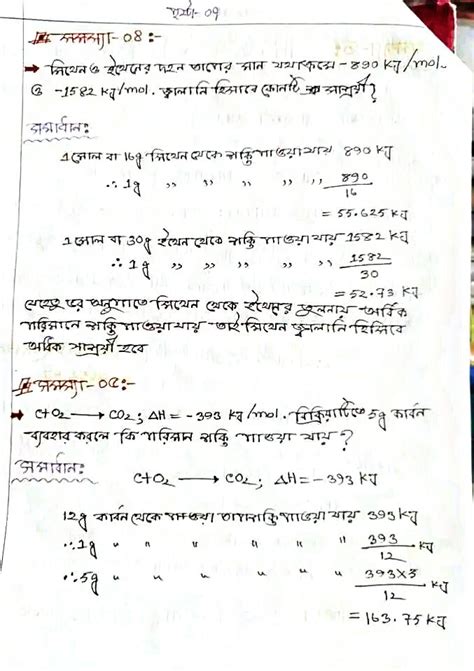 পৃষ্ঠা- ০৭
সমস্যা-০৪:-
→ মিথেন ও ইথেনের দহন তাপের মান যথাক্রমে -৪90 KJ/mol.
ও -1582 KJ/mol. জ্বালানি হিসাবে কোনটি সাশ্রয়ী?
সমাধান:
1 মোল বা 16g মিথেন থেকে শক্তি পাওয়া যায় 890 KJ
∴ 1g ,, ,, ,, ,, ,, 890
16
= 55.625 KJ
1 মোল বা 30g ইথেন থেকে শক্তি পাওয়া যায় 1582 KJ
∴ 1g ,, ,, ,, ,, ,, 1582
30
= 52.73 KJ
যেহেতু ভর অনুপাতে মিথেন থেকে ইথেনের তুলনায় অধিক
পরিমানে শক্তি পাওয়া যায় তাই মিথেন জ্বালানি হিসিবে
অধিক সাশ্রয়ী হবে
সমস্যা-০৫:-
→ C+O₂ → CO₂; ΔH = -393 KJ/mol. বিক্রিয়াটিতে 5g কার্বন
ব্যবহার করলে কি পরিমান শক্তি পাওয়া যায়?
সমাধান:
C+O₂ → CO₂; ΔH = -393 KJ
12g কার্বন থেকে পাওয়া তাপশক্তি পাওয়া যায় 393 KJ
∴ 1g " " " " " 393 KJ
12
∴ 5g " " " " " 393×5 KJ
12
= 163.75 KJ